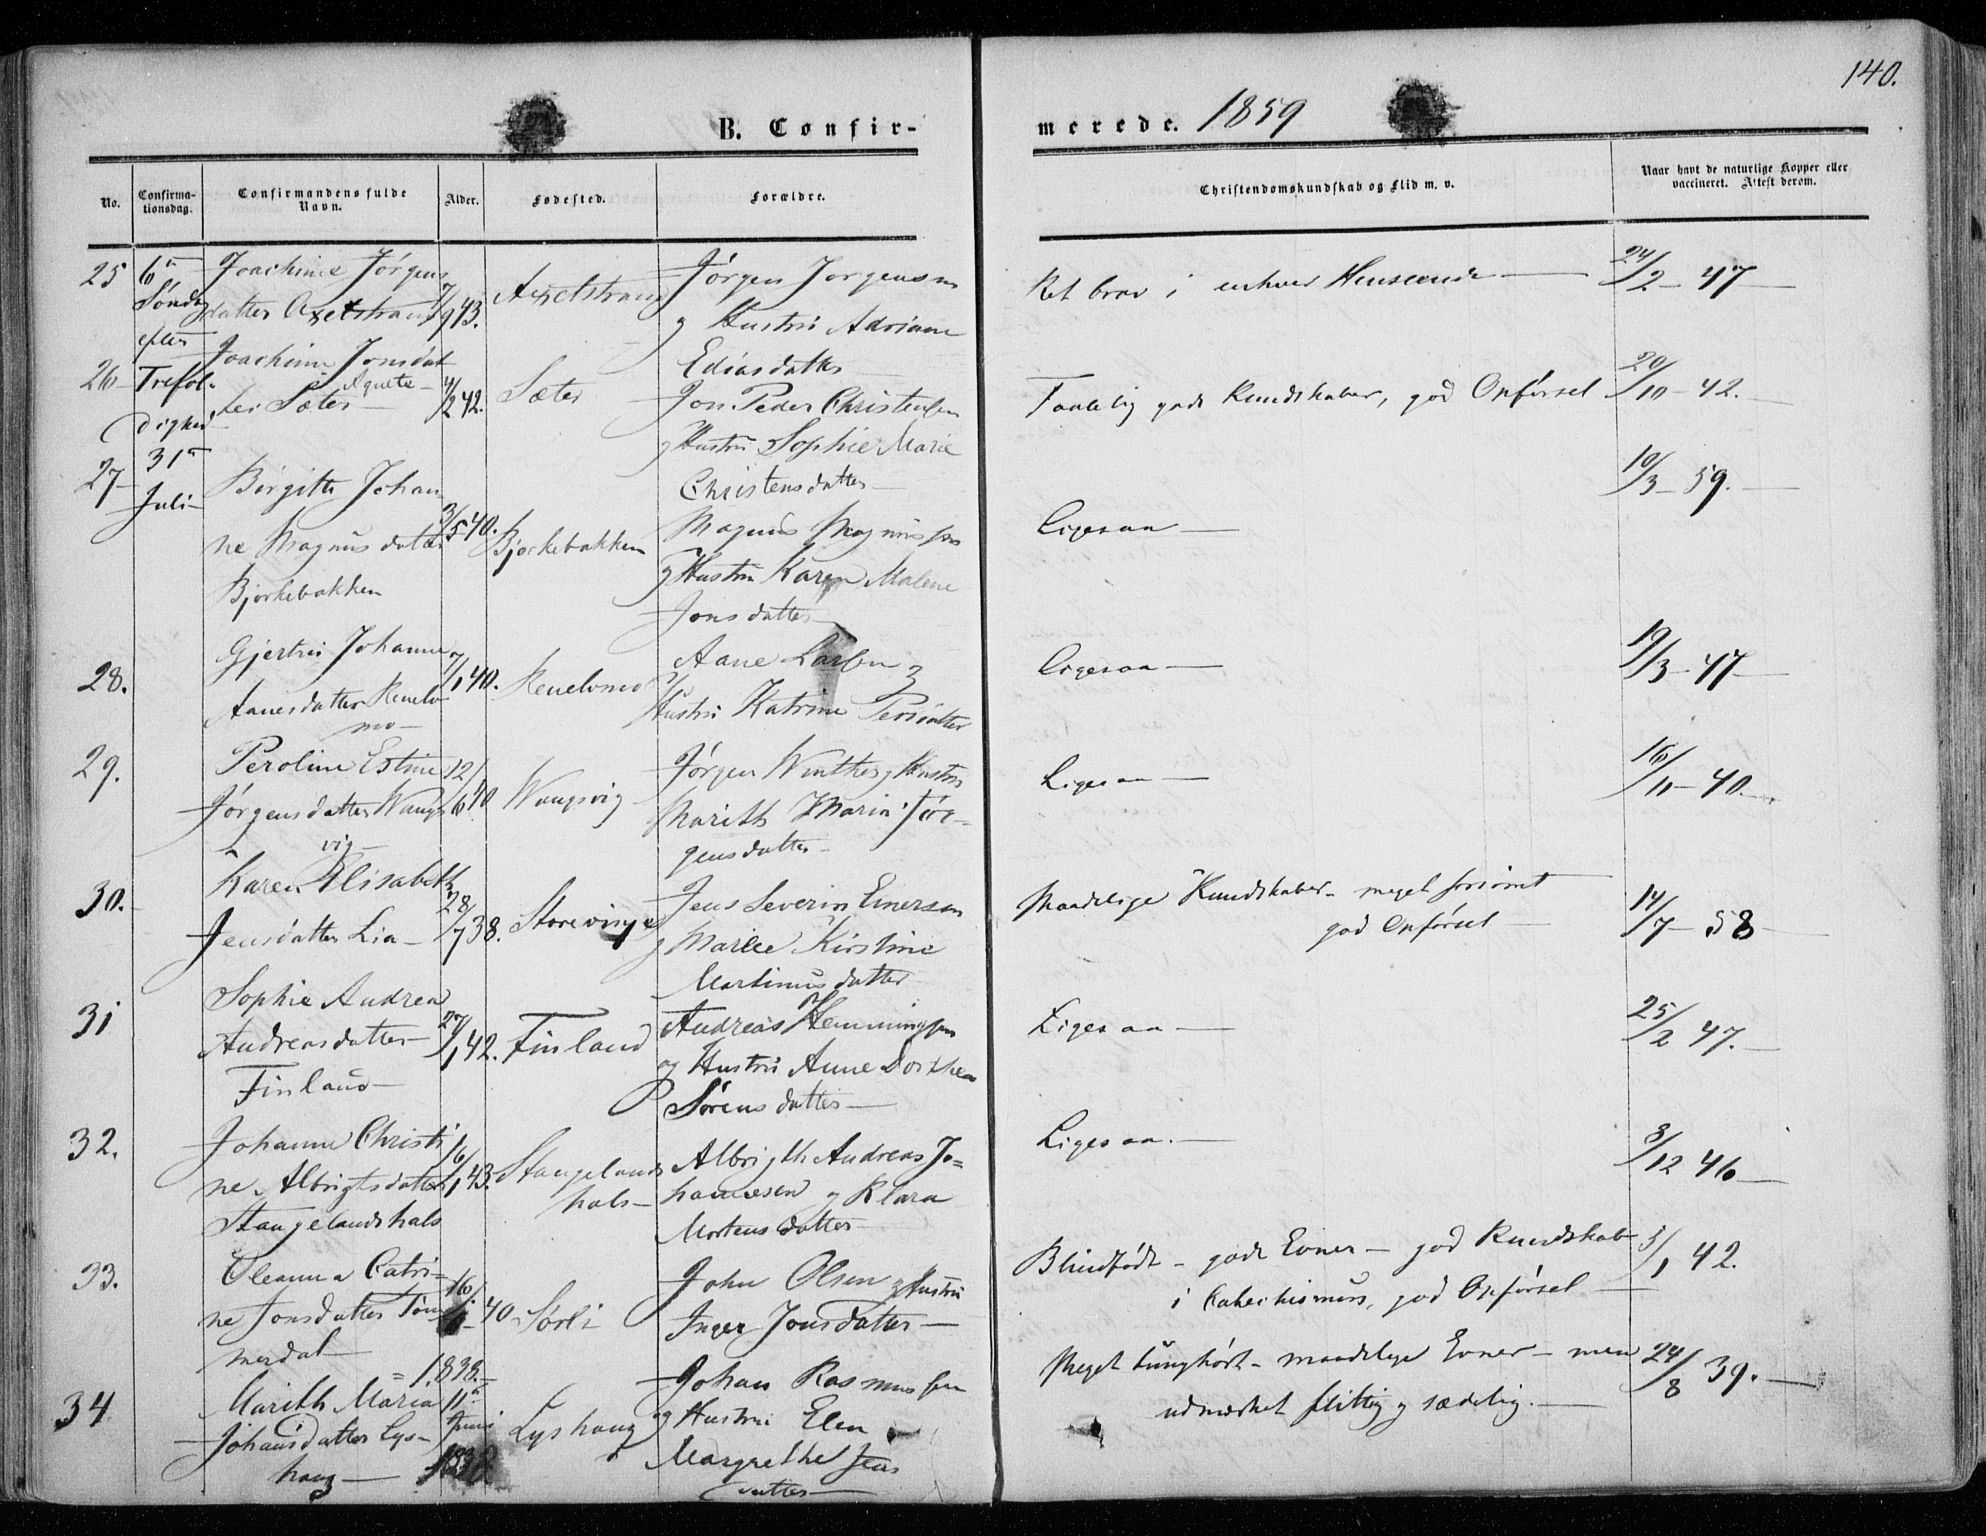 140.
B. Confir-
merede. 1859
No.
Confirma-
tionsdag.
Confirmandens fulde
Navn.
Alder.
Fødested.
Forældre.
Christendomskundskab og Flid m. v.
Naar havt de naturlige Kopper eller
vaccineret. Attest derom.
6te
Søndag
efter
Trefol-
dighed
31te
Juli-
25
Joachime Jørgens
datter Axelstrand
7/9 43.
Axelstrand
Jørgen Jørgensen
og Hustru Adriane
Ediasdatter
Ret brav i enhver Henseende
24/2 - 47
26
Joachime Jonsdat
Agnete
ter Sæter
4/2 42.
Sæter
Jon Peder Christensen
og Hustru Sophie Marie
Christensdatter
Taalelig gode Kundskaber, god Opførsel
20/10 - 42.
27
Birgitte Johan
ne Magnusdatter
Bjorkebakken
3/5 40.
Bjorkebakken
Magnus Magnussen
og Hustru Karen Malene
Jonsdatter
Ligesaa
10/3 - 59.
28.
Gjertru Johanne
Aanesdatter Renelv
mo
7/1 40.
Renelvmo
Aane Larsen og
Hustru Katrine Persdatter
Ligesaa
19/3 - 47
29.
Peroline Estine
Jørgensdatter Wangs
vig
12/6 40
Wangsvig
Jørgen Winther og Hustru
Marith Maria Jør-
gensdatter
Ligesaa
16/11 - 40.
30.
Karen Elisabeth
Jensdatter Lia
28/7 38.
Storevinge
Jens Severin Enersen
og Marie Kirstine
Martinusdatter
Maadelige Kundskaber - meget forsømt
god Opførsel
14/7 - 58
31
Sophie Andrea
Andreasdatter
Finland
27/1 42.
Finland
Andreas Hemmingsen
og Hustru Anne Dorthea
Sørensdatter
Ligesaa
25/2 47.
32.
Johanne Christi
ne Albrigtsdatter
Stangelandshals
16/1 43.
Stangelands
hals
Albrigth Andreas Jo=
hannesen og Klara
Mortensdatter
Ligesaa.
3/12 46
33.
Oleanna Catri-
ne Jonsdatter Tøm
merdal
40
Sørli
John Olsen og Hustru
Inger Jonsdatter
Blindfødt - gode Evner - god Kundskab
i Catechismus, god Opførsel
3/1 42.
34
= 1838.
Marith Maria
Johansdatter Lys-
haug
11te
Juni
Lyshaug
Johan Rasmussen
og Hustru Elen
Margrethe Jens
datter
Meget tunghørt - maadelige Evner - men
udmærket flittig og sædelig.
24/8 39.